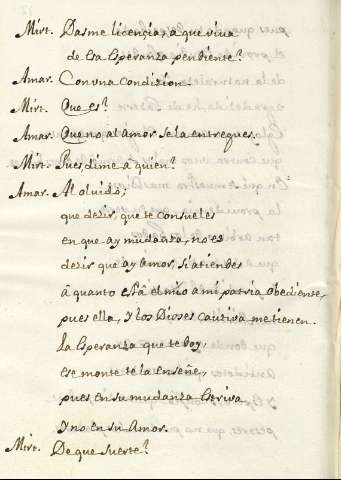 Mirt. Dasme licençia, a que viva
de esa Esperanza pendiente?
Amar. Con vna condizion.
Mirt. Que es?
Amar. Que no al àmor se la entregues.
Mirt. Pues dime a quien?
Amar. Al olvido;
que dezir, que te consueles
en que ay mudanza, no es
dezir que ay Amor, si atiendes
â quanto està el mio a mi patria obediente,
pues ella, y los Dioses cautiva me tienen.
La Esperanza que te doy,
ese monte te la enseñe,
pues en su mudanza Estriva
y no en su Amor.
Mirt. De que suerte?